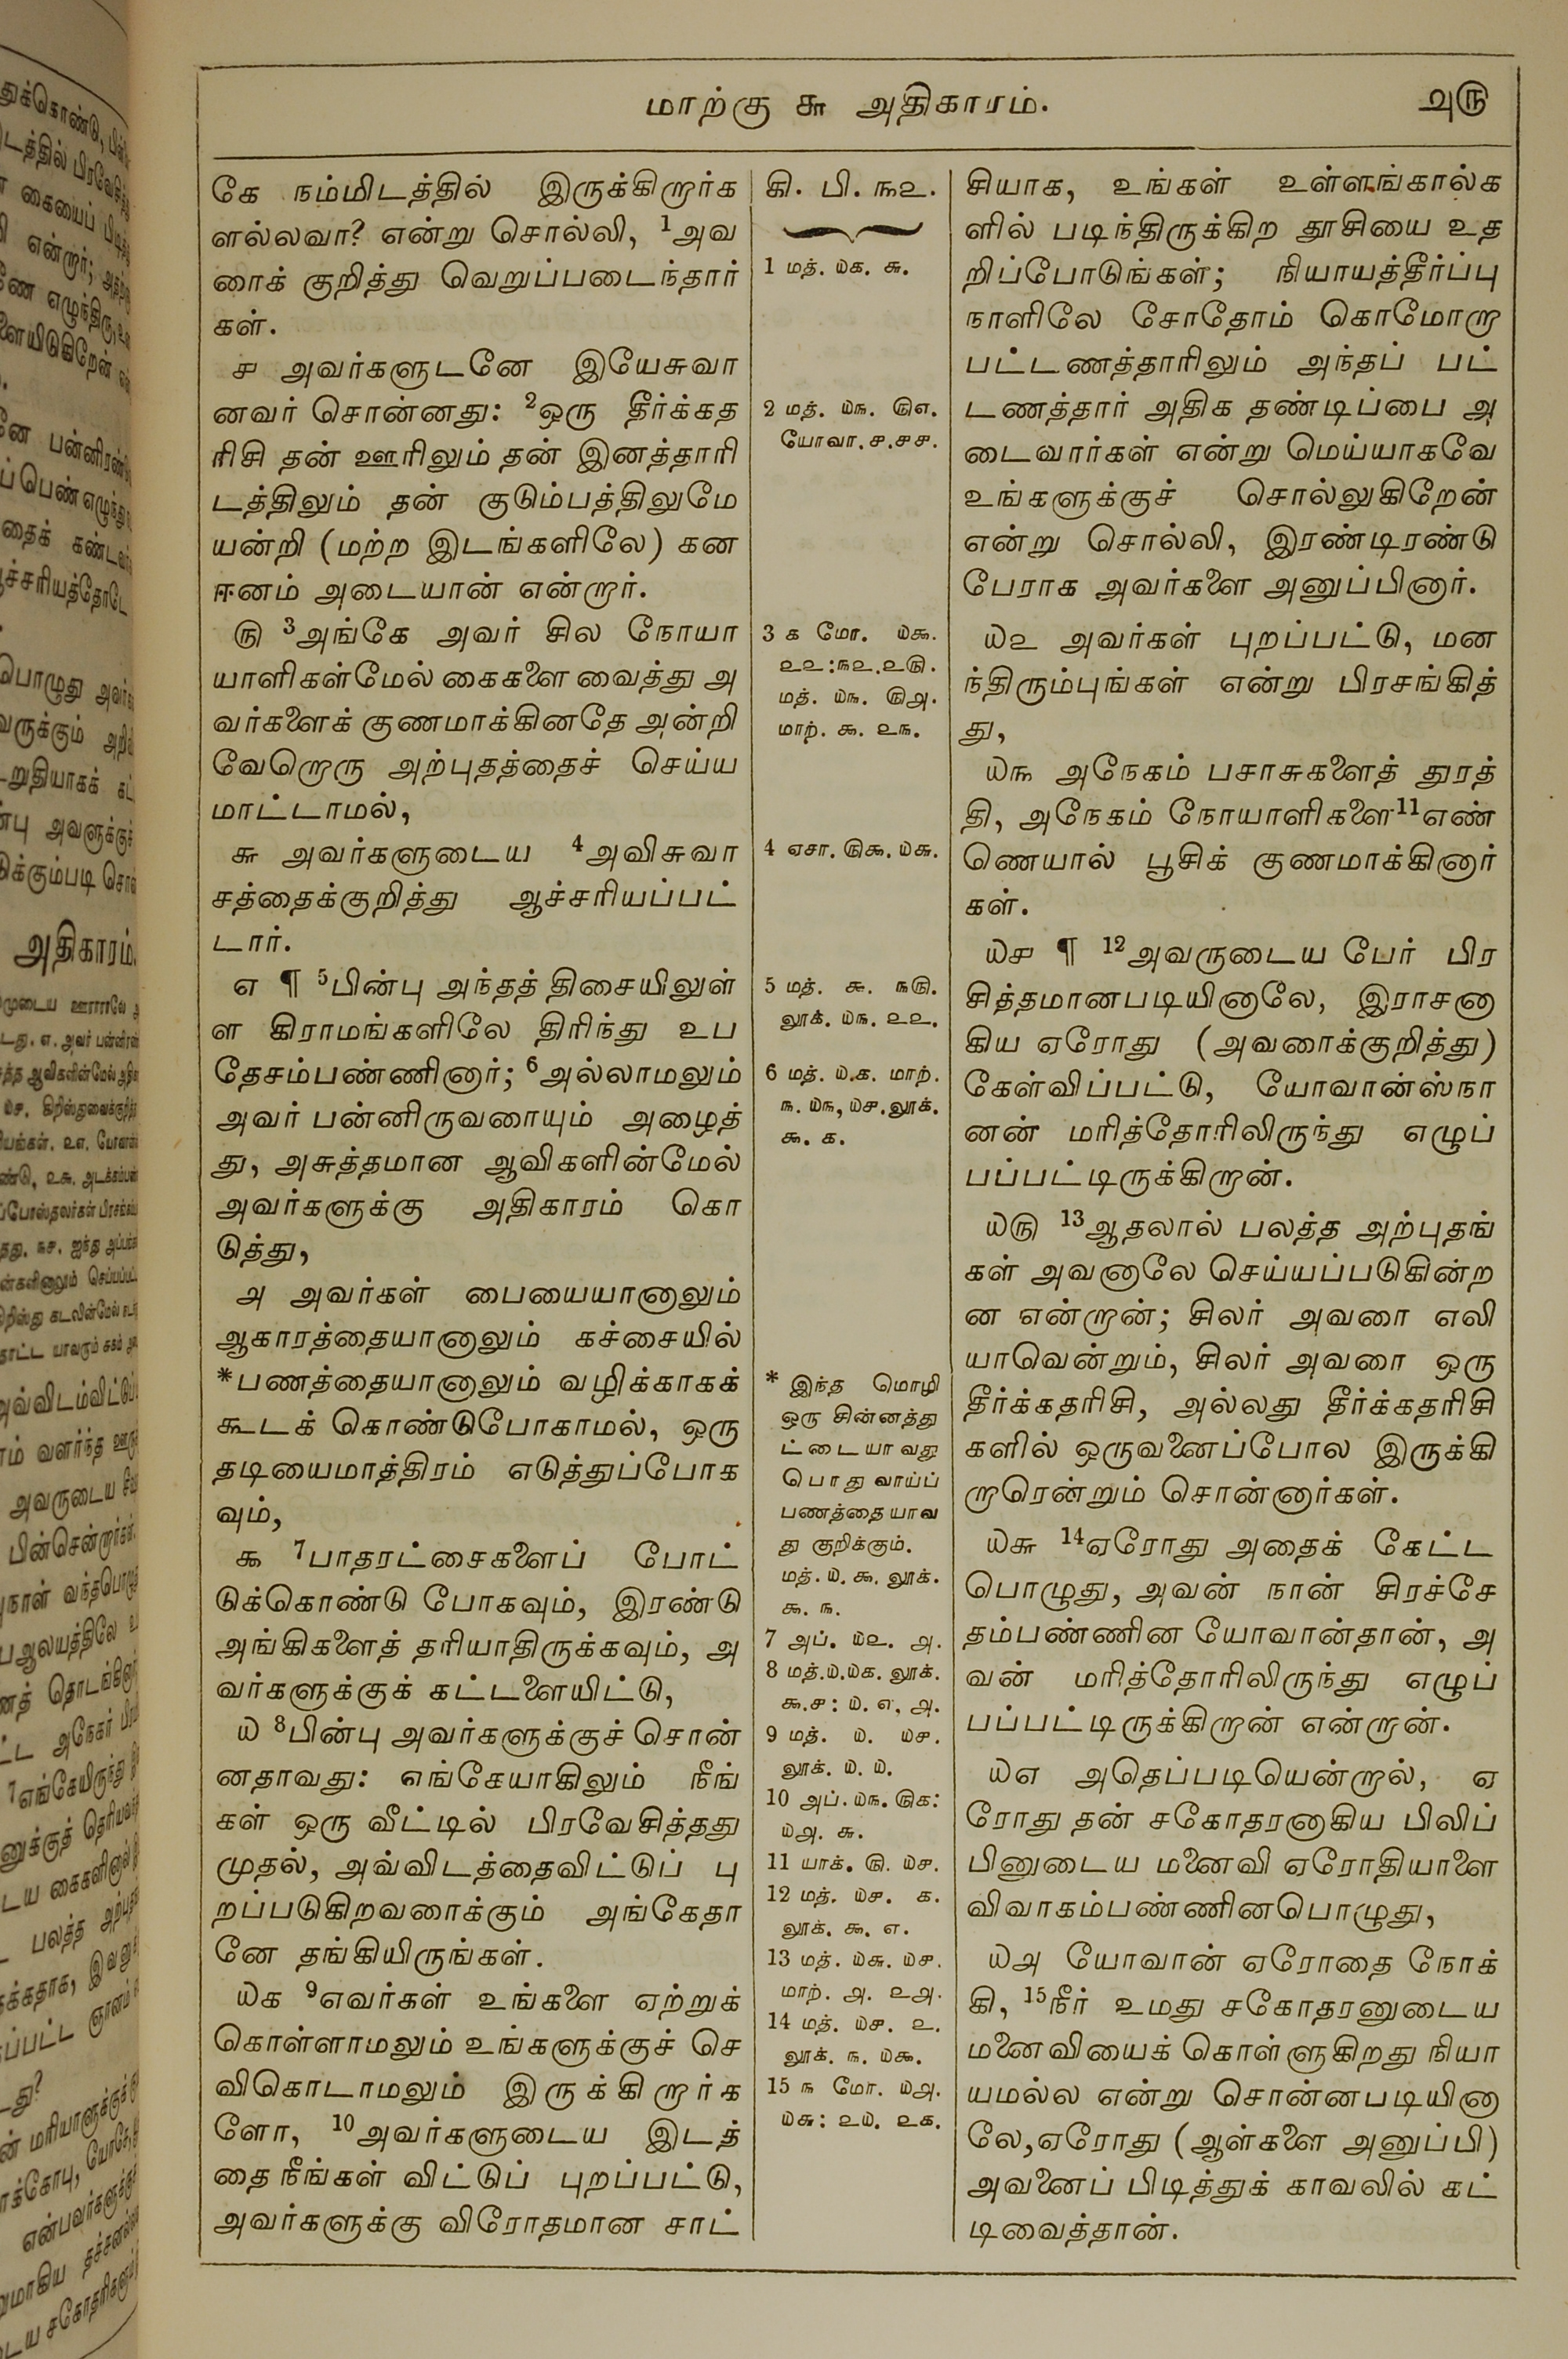 மாற்கு ௬ அதிகாரம்.
௮௫
கே நம்மிடத்தில் இருக்கிறார்க
ளல்லவா? என்று சொல்லி, 1அவ
ரைக் குறித்து வெறுப்படைந்தார்
கள்.
௪ அவர்களுடனே இயேசுவா
னவர் சொன்னது: 2ஒரு தீர்க்கத
ரிசி தன் ஊரிலும் தன் இனத்தாரி
டத்திலும் தன் குடும்பத்திலுமே
யன்றி (மற்ற இடங்களிலே) கன
ஈனம் அடையான் என்றார்.
௫ 3அங்கே அவர் சில நோயா
யாளிகள்மேல் கைகளை வைத்து அ
வர்களைக் குணமாக்கினதே அன்றி
வேறொரு அற்புதத்தைச் செய்ய
மாட்டாமல்,
௬ அவர்களுடைய 4அவிசுவா
சத்தைக்குறித்து ஆச்சரியப்பட்
டார்.
௭ ¶ 5பின்பு அந்தத் திசையிலுள்
ள கிராமங்களிலே திரிந்து உப
தேசம்பண்ணினார்; 6அல்லாமலும்
அவர் பன்னிருவரையும் அழைத்
து, அசுத்தமான ஆவிகளின்மேல்
அவர்களுக்கு அதிகாரம் கொ
டுத்து,
௮ அவர்கள் பையையானாலும்
ஆகாரத்தையானாலும் கச்சையில்
*பணத்தையானாலும் வழிக்காகக்
கூடக் கொண்டுபோகாமல், ஒரு
தடியைமாத்திரம் எடுத்துப்போக
வும்,
௯ 7பாதரட்சைகளைப் போட்
டுக்கொண்டு போகவும், இரண்டு
அங்கிகளைத் தரியாதிருக்கவும், அ
வர்களுக்குக் கட்டளையிட்டு,
௰ 8பின்பு அவர்களுக்குச் சொன்
னதாவது: எங்சேயாகிலும் நீங்
கள் ஒரு வீட்டில் பிரவேசித்தது
முதல், அவ்விடத்தைவிட்டுப் பு
றப்படுகிறவரைக்கும் அங்கேதா
னே தங்கியிருங்கள்.
௰௧ 9எவர்கள் உங்களை ஏற்றுக்
கொள்ளாமலும் உங்களுக்குச் செ
விகொடாமலும் இருக்கிறார்க
ளோ, 10அவர்களுடைய இடத்
தை நீங்கள் விட்டுப் புறப்பட்டு,
அவர்களுக்கு விரோதமான சாட்
கி. பி. ௩௨.
1 மத். ௰௧. ௬.
2 மத். ௰௩. ௫௭.
யோவா.௪.௪௪.
3 ௧ மோ. ௰௯.
௨௨:௩௨.௨௫.
மத். ௰௩. ௫௮.
மாற். ௯. ௨௩.
4 ஏசா. ௫௯. ௰௬.
5 மத். ௯. ௩௫.
லூக். ௰௩. ௨௨.
6 மத். ௰.௧. மாற்.
௩. ௰௩, ௰௪.லூக்.
௯. ௧.
* இந்த மொழி
ஒரு சின்னத்து
ட்டையாவது
பொதுவாய்ப்
பணத்தையாவ
து குறிக்கும்.
மத். ௰. ௯. லூக்.
௯. ௩.
7 அப். ௰௨. ௮.
8 மத்.௰.௰௧. லூக்.
௯.௪: ௰. ௭, ௮.
9 மத். ௰. ௰௪.
லூக். ௰. ௰.
10 அப். ௰௩. ௫௧:
௰௮. ௬.
11 யாக். ௫. ௰௪.
12 மத். ௰௪. ௧.
லூக். ௯. ௭.
13 மத். ௰௬. ௰௪.
மாற். ௮. ௨௮.
14 மத். ௰௪. ௨.
லூக். ௩. ௰௯.
15 ௩ மோ. ௰௮.
௰௬: ௨௰. ௨௧.
சியாக, உங்கள் உள்ளங்கால்க
ளில் படிந்திருக்கிற தூசியை உத
றிப்போடுங்கள்; நியாயத்தீர்ப்பு
நாளிலே சோதோம் கொமோறா
பட்டணத்தாரிலும் அந்தப் பட்
டணத்தார் அதிக தண்டிப்பை அ
டைவார்கள் என்று மெய்யாகவே
உங்களுக்குச் சொல்லுகிறேன்
என்று சொல்லி, இரண்டிரண்டு
பேராக அவர்களை அனுப்பினார்.
௰௨ அவர்கள் புறப்பட்டு, மன
ந்திரும்புங்கள் என்று பிரசங்கித்
து,
௰௩ அநேகம் பசாசுகளைத் துரத்
தி, அநேகம் நோயாளிகளை 11எண்
ணெயால் பூசிக் குணமாக்கினார்
கள்.
௰௪ ¶ 12அவருடைய பேர் பிர
சித்தமானபடியினாலே, இராசனா
கிய ஏரோது (அவரைக்குறித்து)
கேள்விப்பட்டு, யோவான்ஸ்நா
னன் மரித்தோரிலிருந்து எழுப்
பப்பட்டிருக்கிறான்.
௰௫ 13ஆதலால் பலத்த அற்புதங்
கள் அவனாலே செய்யப்படுகின்ற
ன என்றான்; சிலர் அவரை எலி
யாவென்றும், சிலர் அவரை ஒரு
தீர்க்கதரிசி, அல்லது தீர்க்கதரிசி
களில் ஒருவனைப்போல இருக்கி
றாரென்றும் சொன்னார்கள்.
௰௬ 14ஏரோது அதைக் கேட்ட
பொழுது, அவன் நான் சிரச்சே
தம்பண்ணின யோவான்தான், அ
வன் மரித்தோரிலிருந்து எழுப்
பப்பட்டிருக்கிறான் என்றான்.
௰௭ அதெப்படியென்றால், ஏ
ரோது தன் சகோதரனாகிய பிலிப்
பினுடைய மனைவி ஏரோதியாளை
விவாகம்பண்ணினபொழுது,
௰௮ யோவான் ஏரோதை நோக்
கி, 15நீர் உமது சகோதரனுடைய
மனைவியைக் கொள்ளுகிறது நியா
யமல்ல என்று சொன்னபடியினா
லே,ஏரோது (ஆள்களை அனுப்பி)
அவனைப் பிடித்துக் காவலில் கட்
டிவைத்தான்.